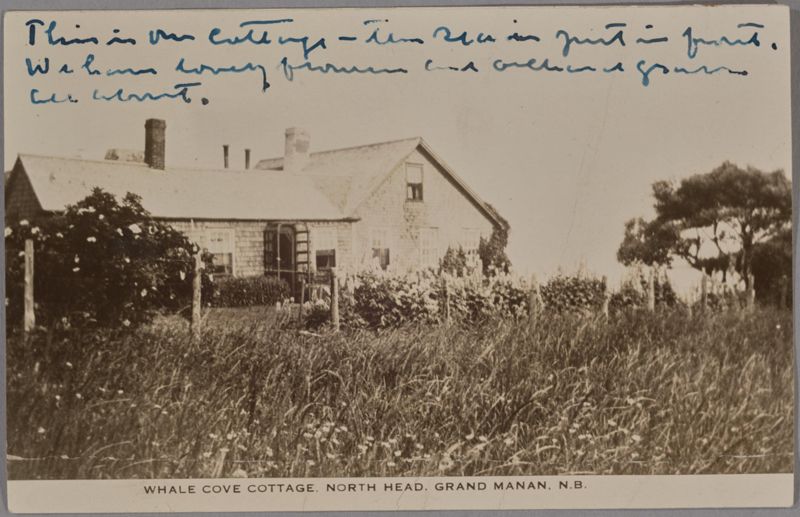 This is our cottage – the sea is just in front.
We have lovely flowers and orchard grass
all about.
WHALE COVE COTTAGE, NORTH HEAD, GRAND MANAN, N.B.